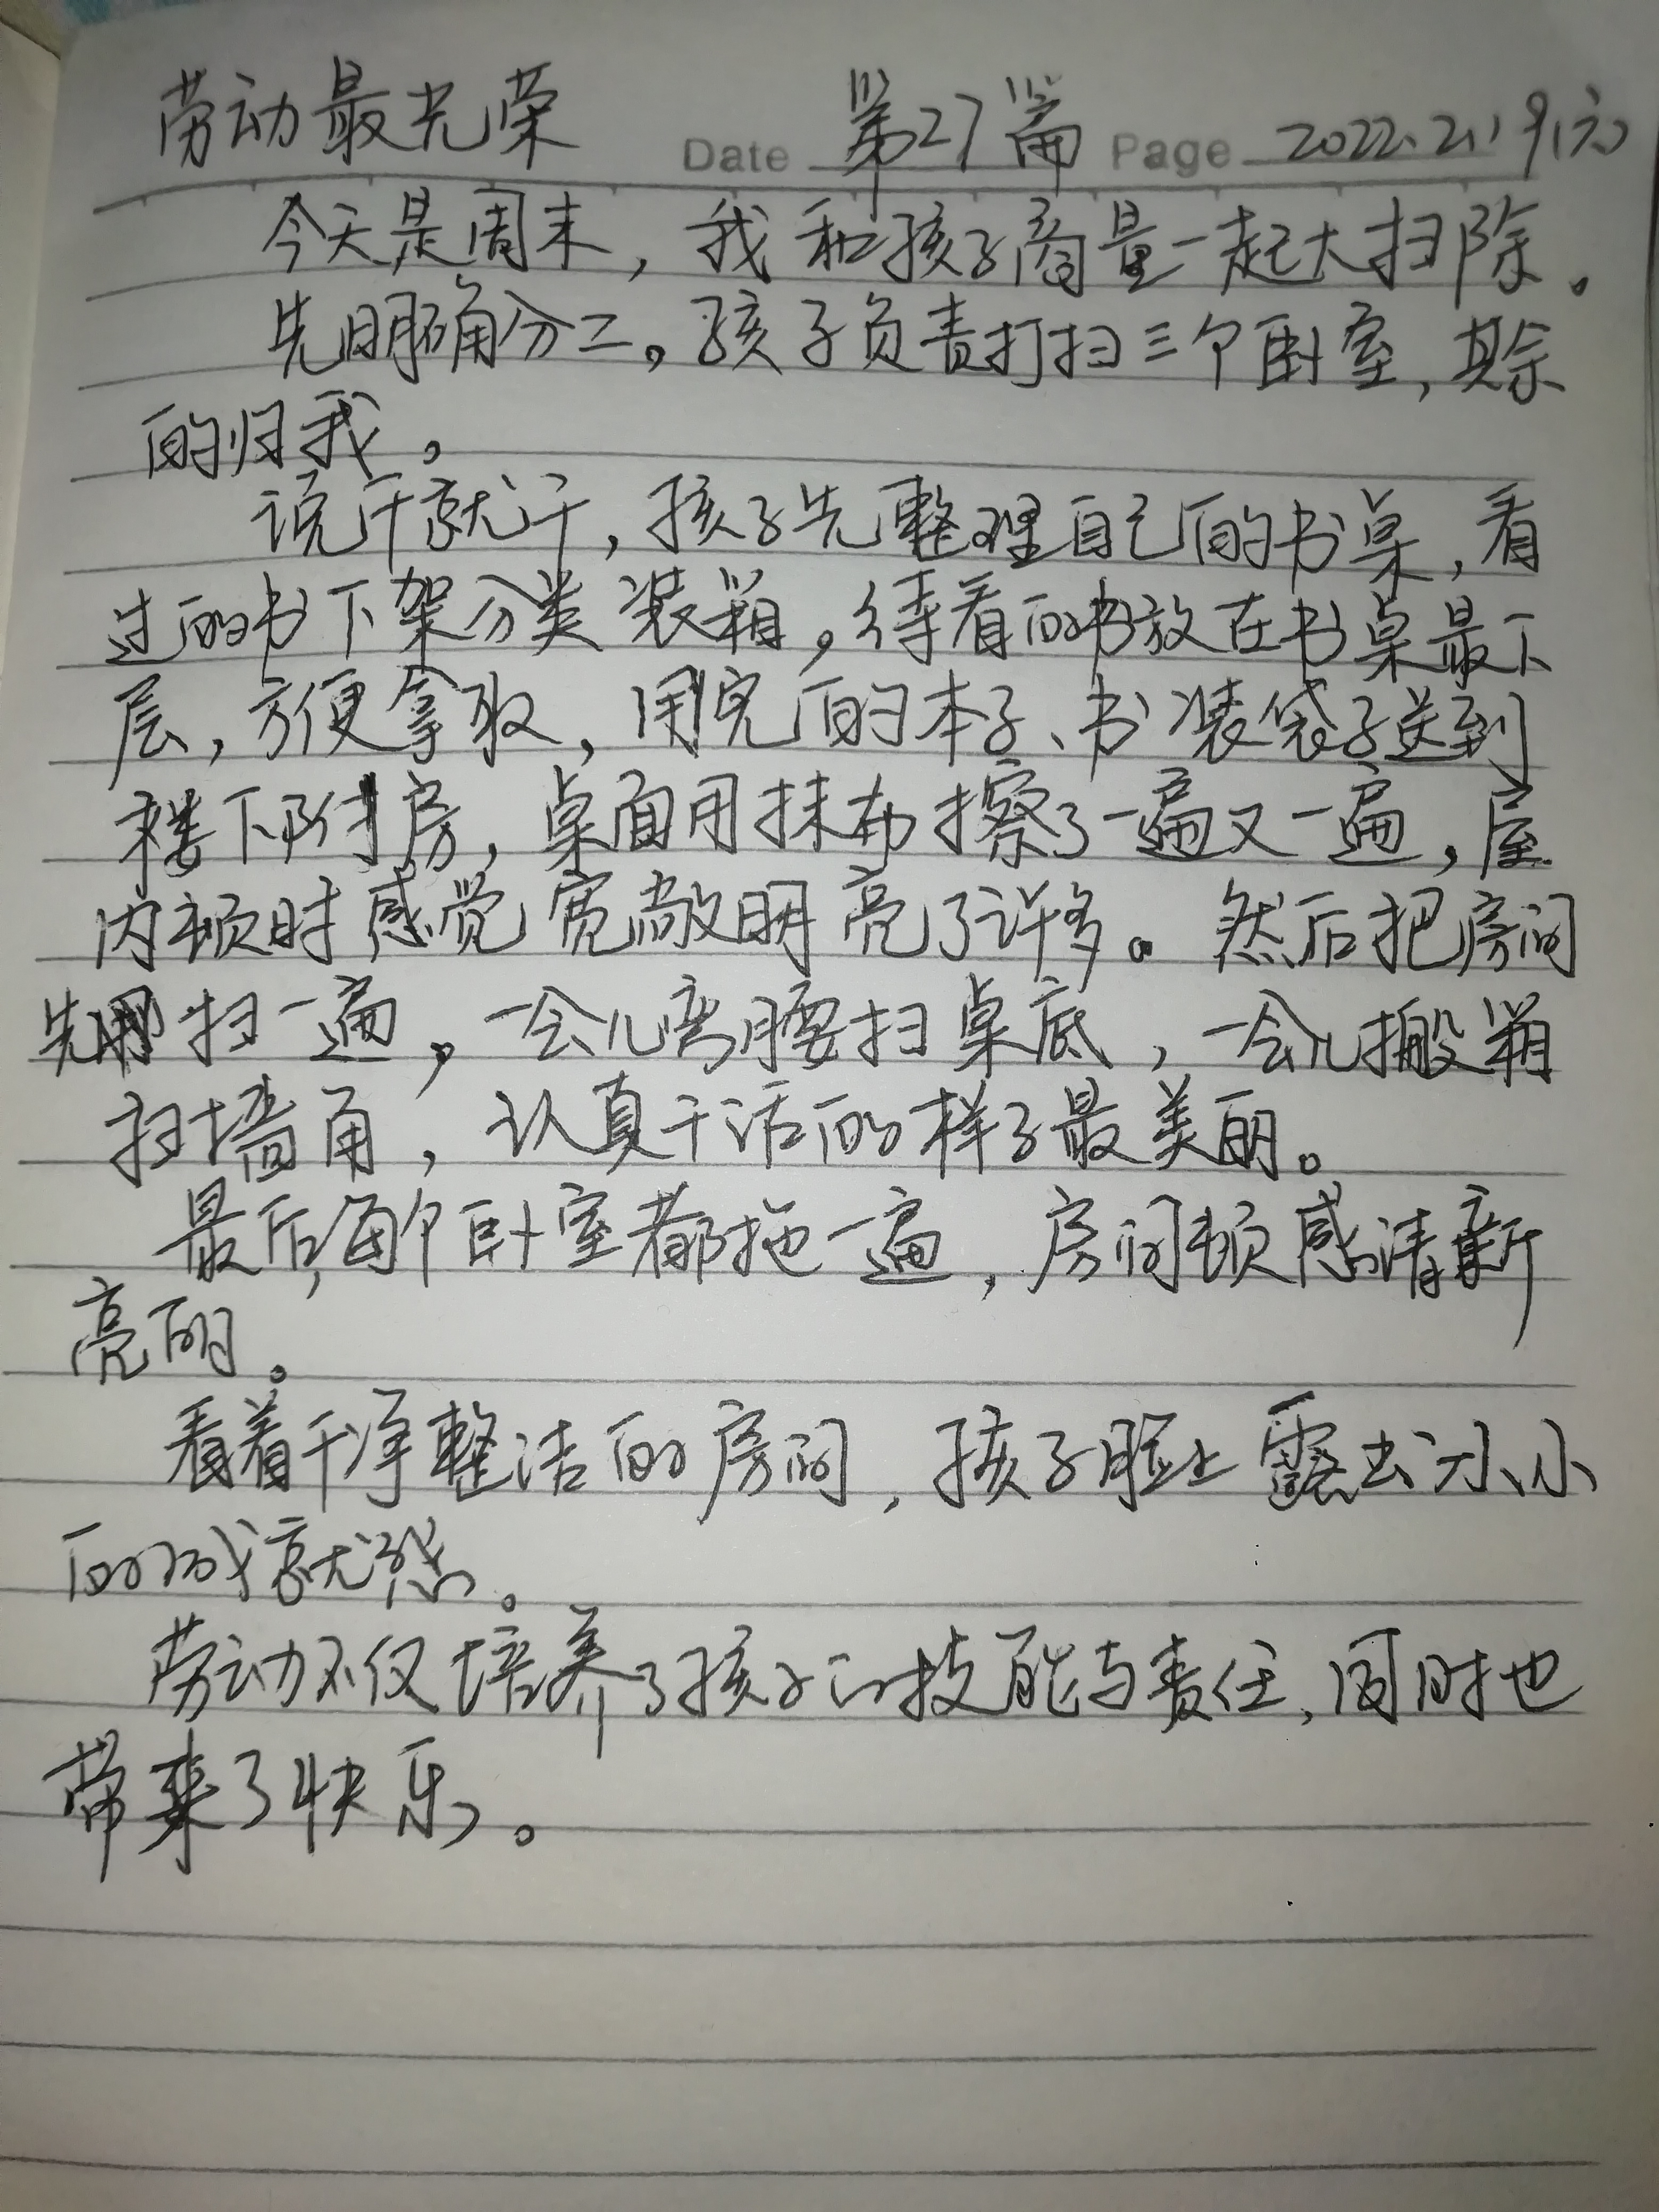 劳动最光荣 Date 第27篇 Page 2022.2.19(六)
今天是周末，我和孩子商量一起大扫除。
先明确分工。孩子负责打扫三个卧室，其余
的归我。
说干就干，孩子先整理自己的书桌，看
过的书下架分类装箱。待看的书放在书桌最下
层，方便拿取，用完的本子、书装袋子送到
楼下附房，桌面用抹布擦了一遍又一遍，屋
内顿时感觉宽敞明亮了许多。然后把房间
先扫一遍，一会儿弯腰扫桌底，一会儿搬箱
扫墙角，认真干活的样子最美丽。
最后，每个卧室都拖一遍，房间顿感清新
亮丽。
看着干净整洁的房间，孩子脸上露出小小
的成就感。
劳动不仅培养了孩子的技能与责任，同时也
带来了快乐。